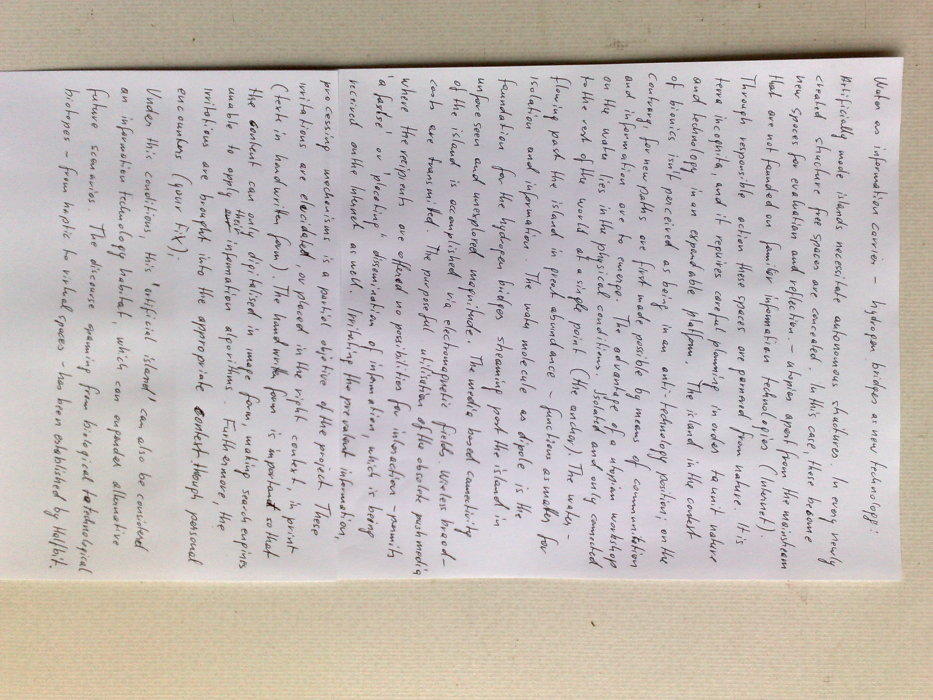 Water an information carrier – hydrogen bridges as new technology:
Artificially made islands necessitate autonomous structures. In every newly
created structure free spaces are concealed. In this case, these become
new spaces for evaluation and reflection. – utopian apart from the mainstream
that are not founded on familiar information technologies (Internet).
Through responsible action these spaces are garnered from nature. It is
terra incognita, and it requires careful planning in order to unit nature
and technology in an expandable platform. The island in the context
of bionics isn't perceived as being in an anti-technology position; on the
contrary, for new paths, are first made possible by means of communitation
and information are to emerge. The advantage of a utopian workshop
on the water lies in the physical conditions. Isolated and only connected
to the rest of the world at a single point (the anchor). The water –
flowing past the island in great abundance – functions as matter for
isolation and information. The water molecule as dipole is the
foundation for the hydrogen bridges streaming past the island in an
unforeseen and unexplored magnitude. The media based connectivity
of the island is accomplished via electromagnetic fields. Wireless broad–
casts are transmitted. The purposeful utilisation of the obsolete push media
where the recipients are offered no possibilities for interaction – permits
a 'pardse' or 'placating' dissemination of information, which is being
received outhe Internet as well. Irritating the prevalent information,
processing mechanisms is a partial objective of the project. These
irritations are elucidated or placed in the right context, in print
(texte in handwritten form). The hand written form is important so that
the content can only digitalised in image form, making search engines
unable to apply their information algorithms. Furthermore, the
irritations are brought into the appropriate context though personal
encounters (your fix);
Under this conditions, this "artificial island" can also be considered
an information technology habitat, which can engender alternative
future scenarios. The discourse spanning from biological to technological
biotopes – from haptic to virtual spaces – has been established by Hallbit.